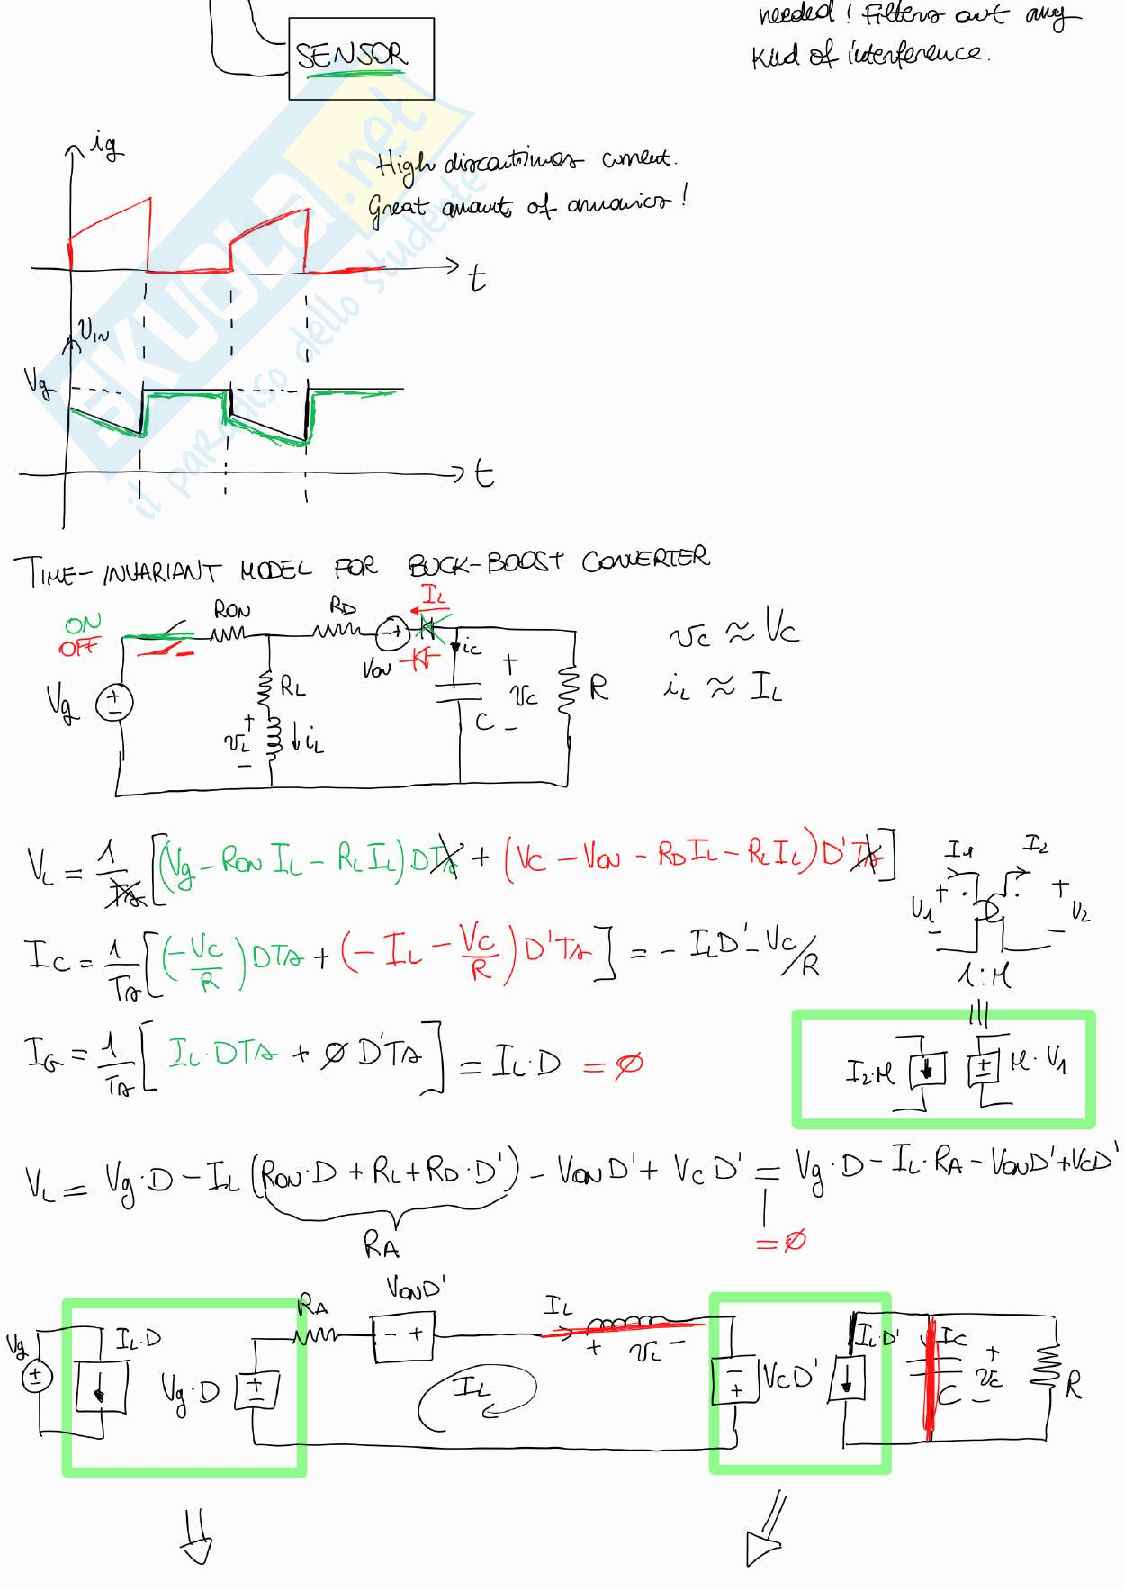 needed! Filters out any
kind of interference.
SENSOR
ig
High discontinuos current.
Great amount of armonics!
t
vIN
Vg
t
SKUOLA.net
il paradiso dello studente
TIME-INVARIANT MODEL FOR BUCK-BOOST CONVERTER
ON
OFF
RON
RD
IL
VON
iC
Vg
RL
+
vL
-
iL
C
+
vC
-
R
vC ≈ VC
iL ≈ IL
VL = 1/Ts [(Vg - RON IL - RL IL) D Ts + (VC - VON - RD IL - RL IL) D' Ts]
IC = 1/Ts [(-VC/R) DTs + (-IL - VC/R) D'Ts] = - ILD' - VC/R
IG = 1/Ts [IL·DTs + ∅ D'Ts] = IL·D = ∅
I1 I2
+ V1 -
+ V2 -
1:M
|||
I2·M
M·V1
VL = Vg·D - IL (RON·D + RL + RD·D') - VOND' + VCD' = Vg·D - IL·RA - VOND' + VCD'
RA
= ∅
Vg
IL·D
Vg·D
RA
VOND'
- +
IL
+ vL -
IL
VCD'
IL·D'
IC
C
+
vC
-
R